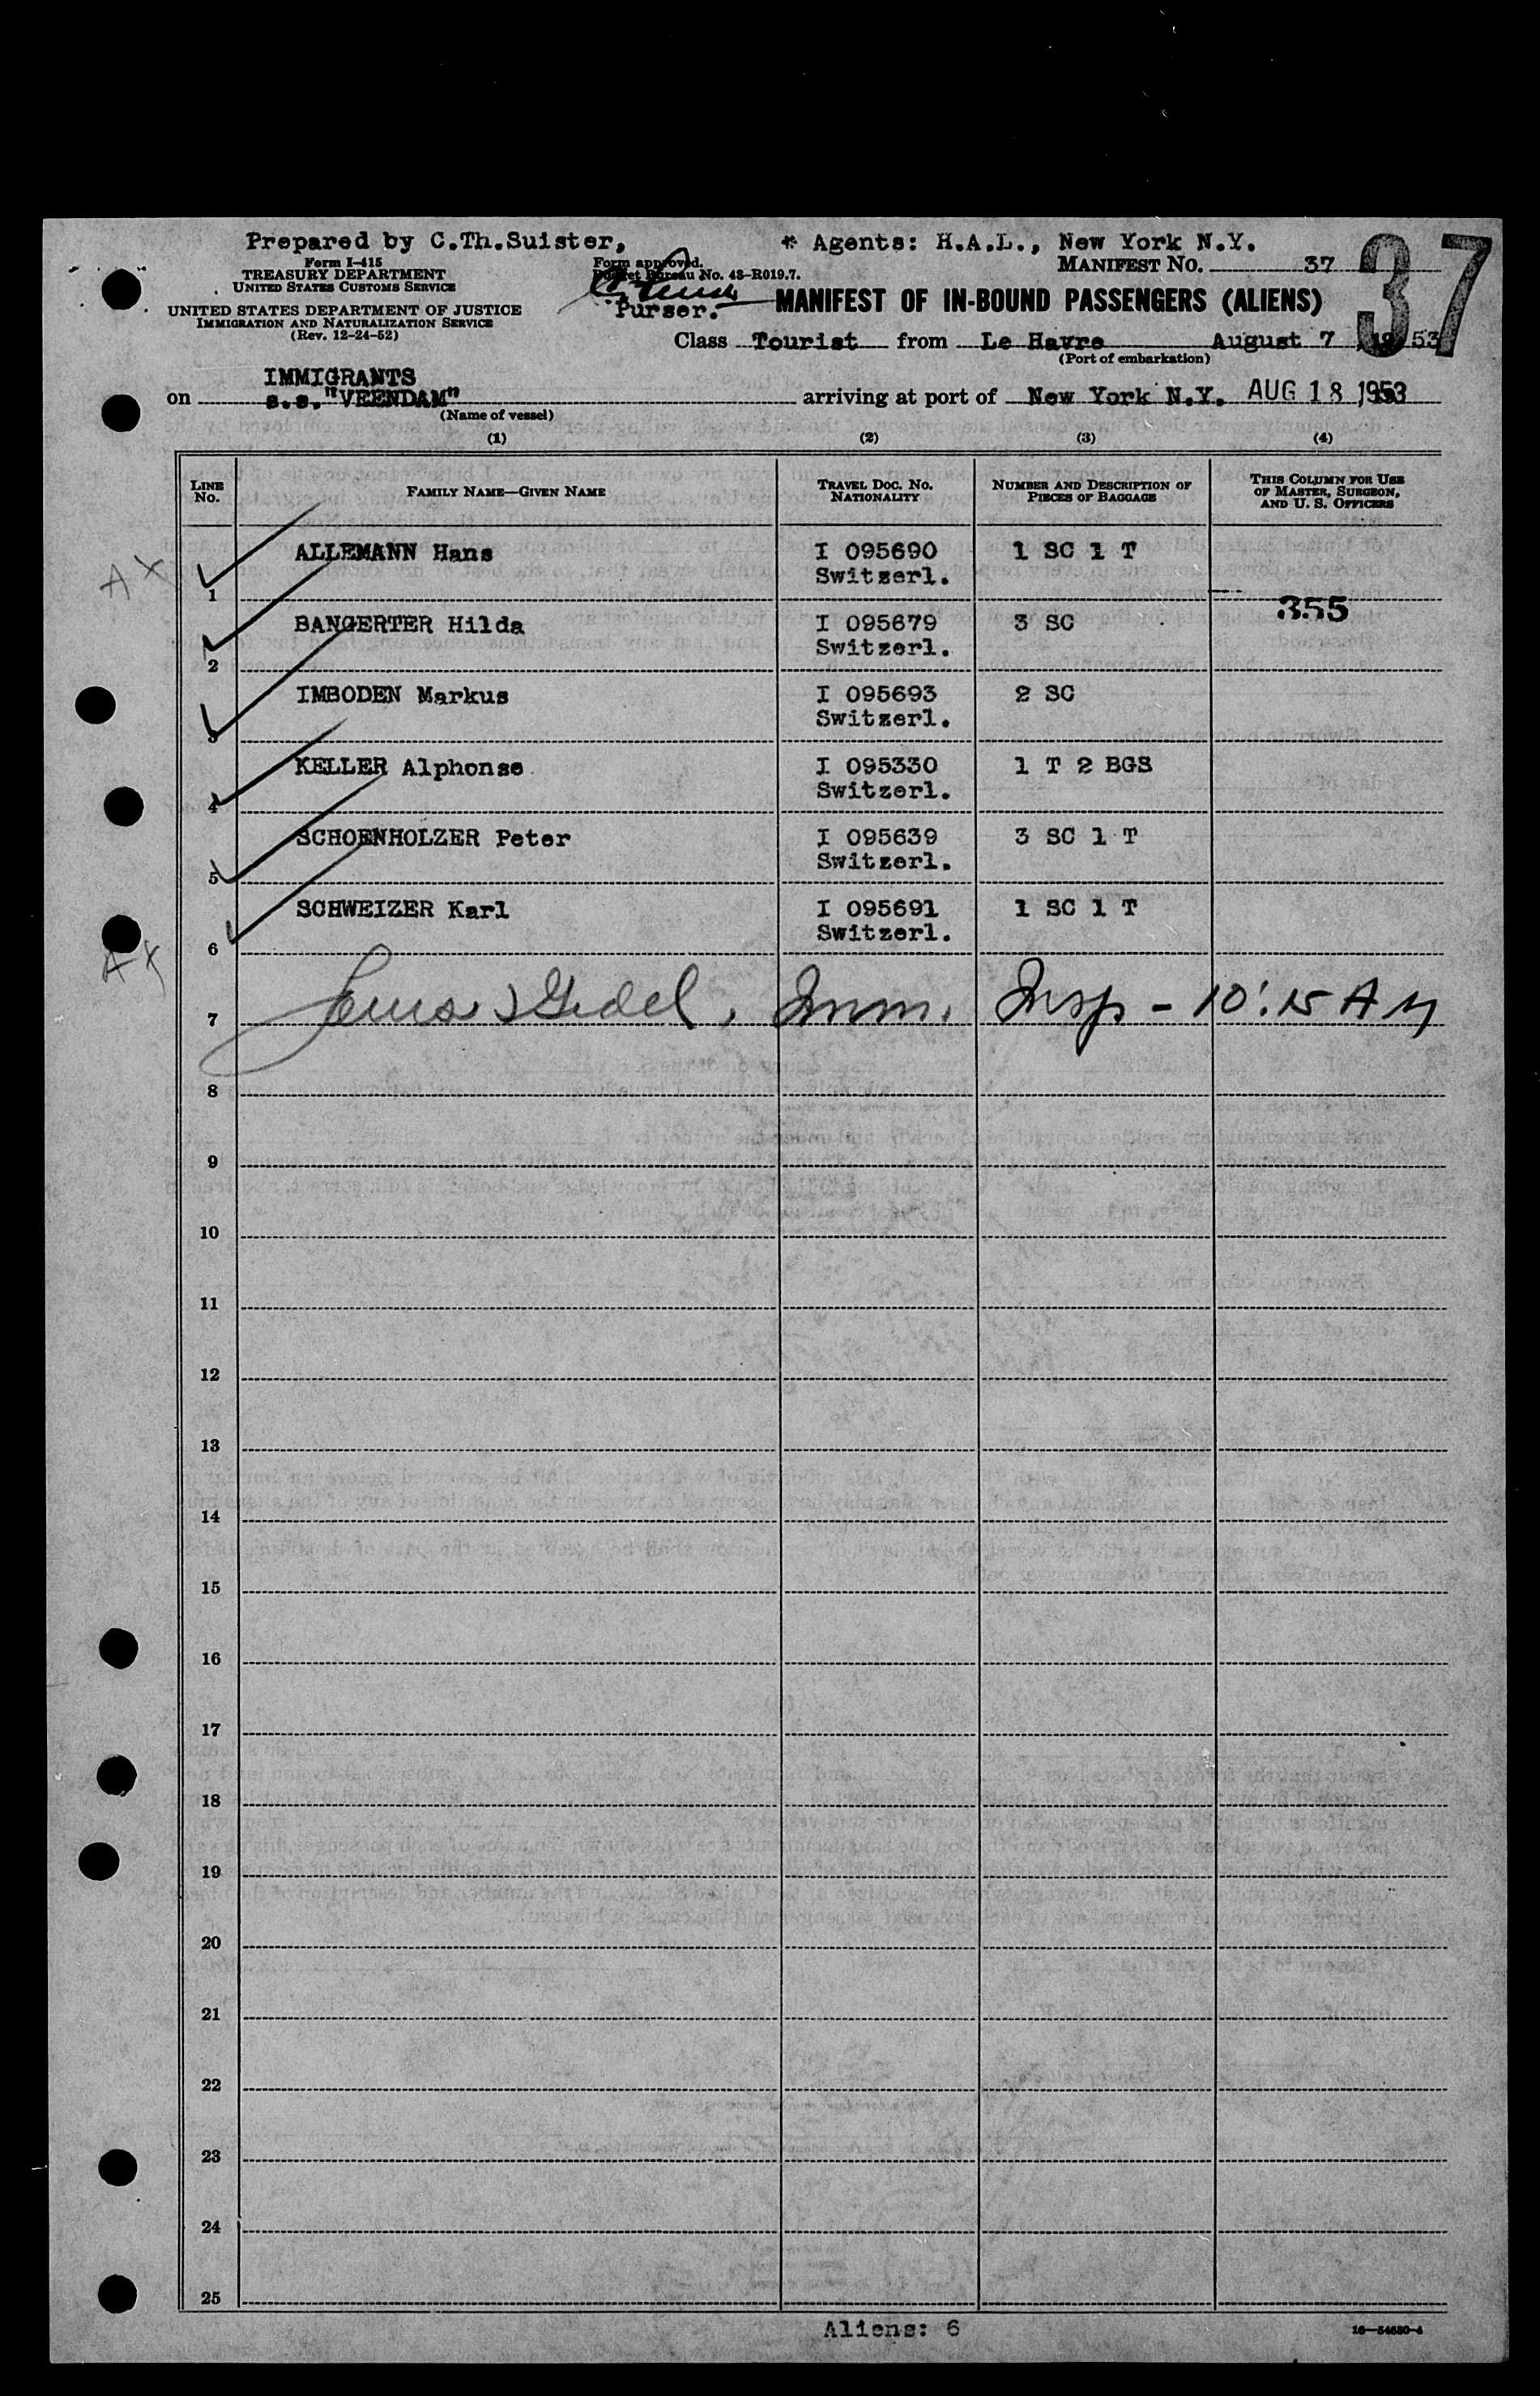 Prepared by C.Th.Suister, * Agents: H.A.L., New York N.Y.
Form I-415
TREASURY DEPARTMENT
UNITED STATES CUSTOMS SERVICE
UNITED STATES DEPARTMENT OF JUSTICE
IMMIGRATION AND NATURALIZATION SERVICE
(Rev. 12-24-52)
Form approved.
Budget Bureau No. 43-R019.7.
Purser.
MANIFEST NO. 37
37
MANIFEST OF IN-BOUND PASSENGERS (ALIENS)
Class Tourist from Le Havre August 7, 1953
(Port of embarkation)
IMMIGRANTS
on s.s."VEENDAM" arriving at port of New York N.Y. AUG 18 1953
(Name of vessel)
(1) (2) (3) (4)
LINE NO. FAMILY NAME—GIVEN NAME TRAVEL DOC. NO. NATIONALITY NUMBER AND DESCRIPTION OF PIECES OF BAGGAGE THIS COLUMN FOR USE OF MASTER, SURGEON, AND U. S. OFFICERS
AX
ALLEMANN Hans I 095690 1 SC 1 T
1 Switzerl.
355
BANGERTER Hilda I 095679 3 SC
2 Switzerl.
IMBODEN Markus I 095693 2 SC
3 Switzerl.
KELLER Alphonse I 095330 1 T 2 BGS
4 Switzerl.
SCHOENHOLZER Peter I 095639 3 SC 1 T
5 Switzerl.
SCHWEIZER Karl I 095691 1 SC 1 T
6 Switzerl.
AX
7 Imm. Insp - 10:15 AM
8
9
10
11
12
13
14
15
16
17
18
19
20
21
22
23
24
25
Aliens: 6
16—54630-4